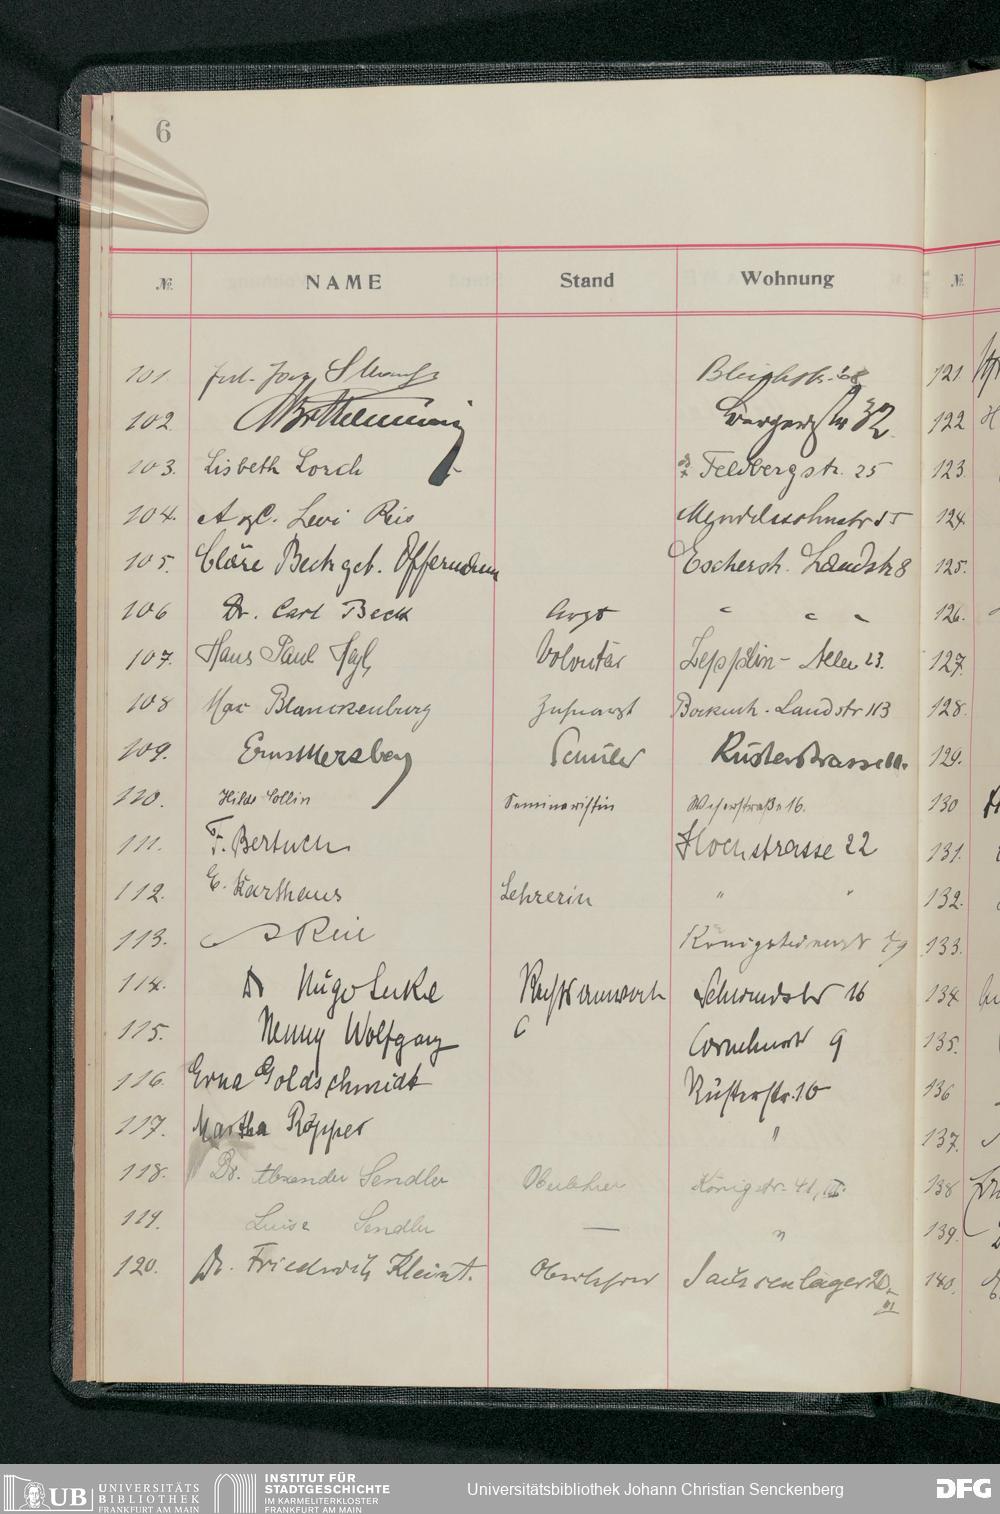 6
№ NAME Stand Wohnung №
101. 121.
102. 32 122
103. Lisbeth Lorch Feldbergstr. 25 123.
104. A. Levi Reis Mendelssohnstr 124.
105. Cläre Beck geb. Offermann Eschersh. Landstr 8 125.
106 Dr. Carl Beck Arzt " " " 126.
107. Hans Paul Volontär Zeppelin-Allee 23. 127.
108 Max Blanckenburg Zahnarzt Bockenh. Landstr 113 128.
109. Ernst Merzbach Schüler Rüsterstrasse 129.
110. Hilde Collin Seminaristin Weserstraße 16. 130
111. F. Bertuch Hochstrasse 22 131.
112. E. Karthaus Lehrerin " " 132.
113. 133.
114. Dr Hugo Rechtsanwalt Schwindstr 16 134
115. Henny Wolfgang Corneliusstr 9 135.
116. Erna Goldschmidt Rüsterstr. 10 136
117. Martha Röpper " 137.
118. Dr. Alexander Sendler Oberlehrer Königstr. 41, III. 138
119. Luise Sendler — " 139.
120. Dr. Friedrich Kleint. Oberlehrer Sachsenlager 20 III 140.
UB UNIVERSITÄTS BIBLIOTHEK FRANKFURT AM MAIN
INSTITUT FÜR STADTGESCHICHTE IM KARMELITERKLOSTER FRANKFURT AM MAIN
Universitätsbibliothek Johann Christian Senckenberg
DFG